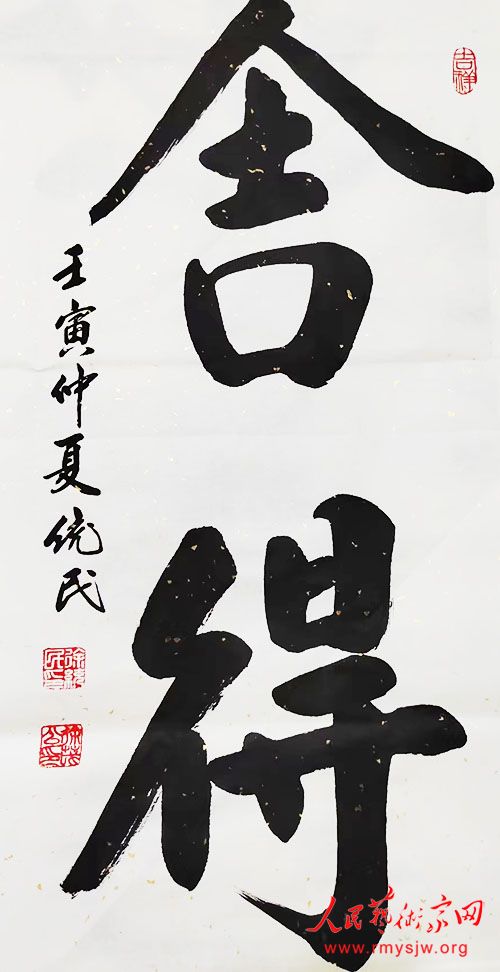 吉祥
舍得
壬寅仲夏统民
人民藝術家网
www.rmysjw.org